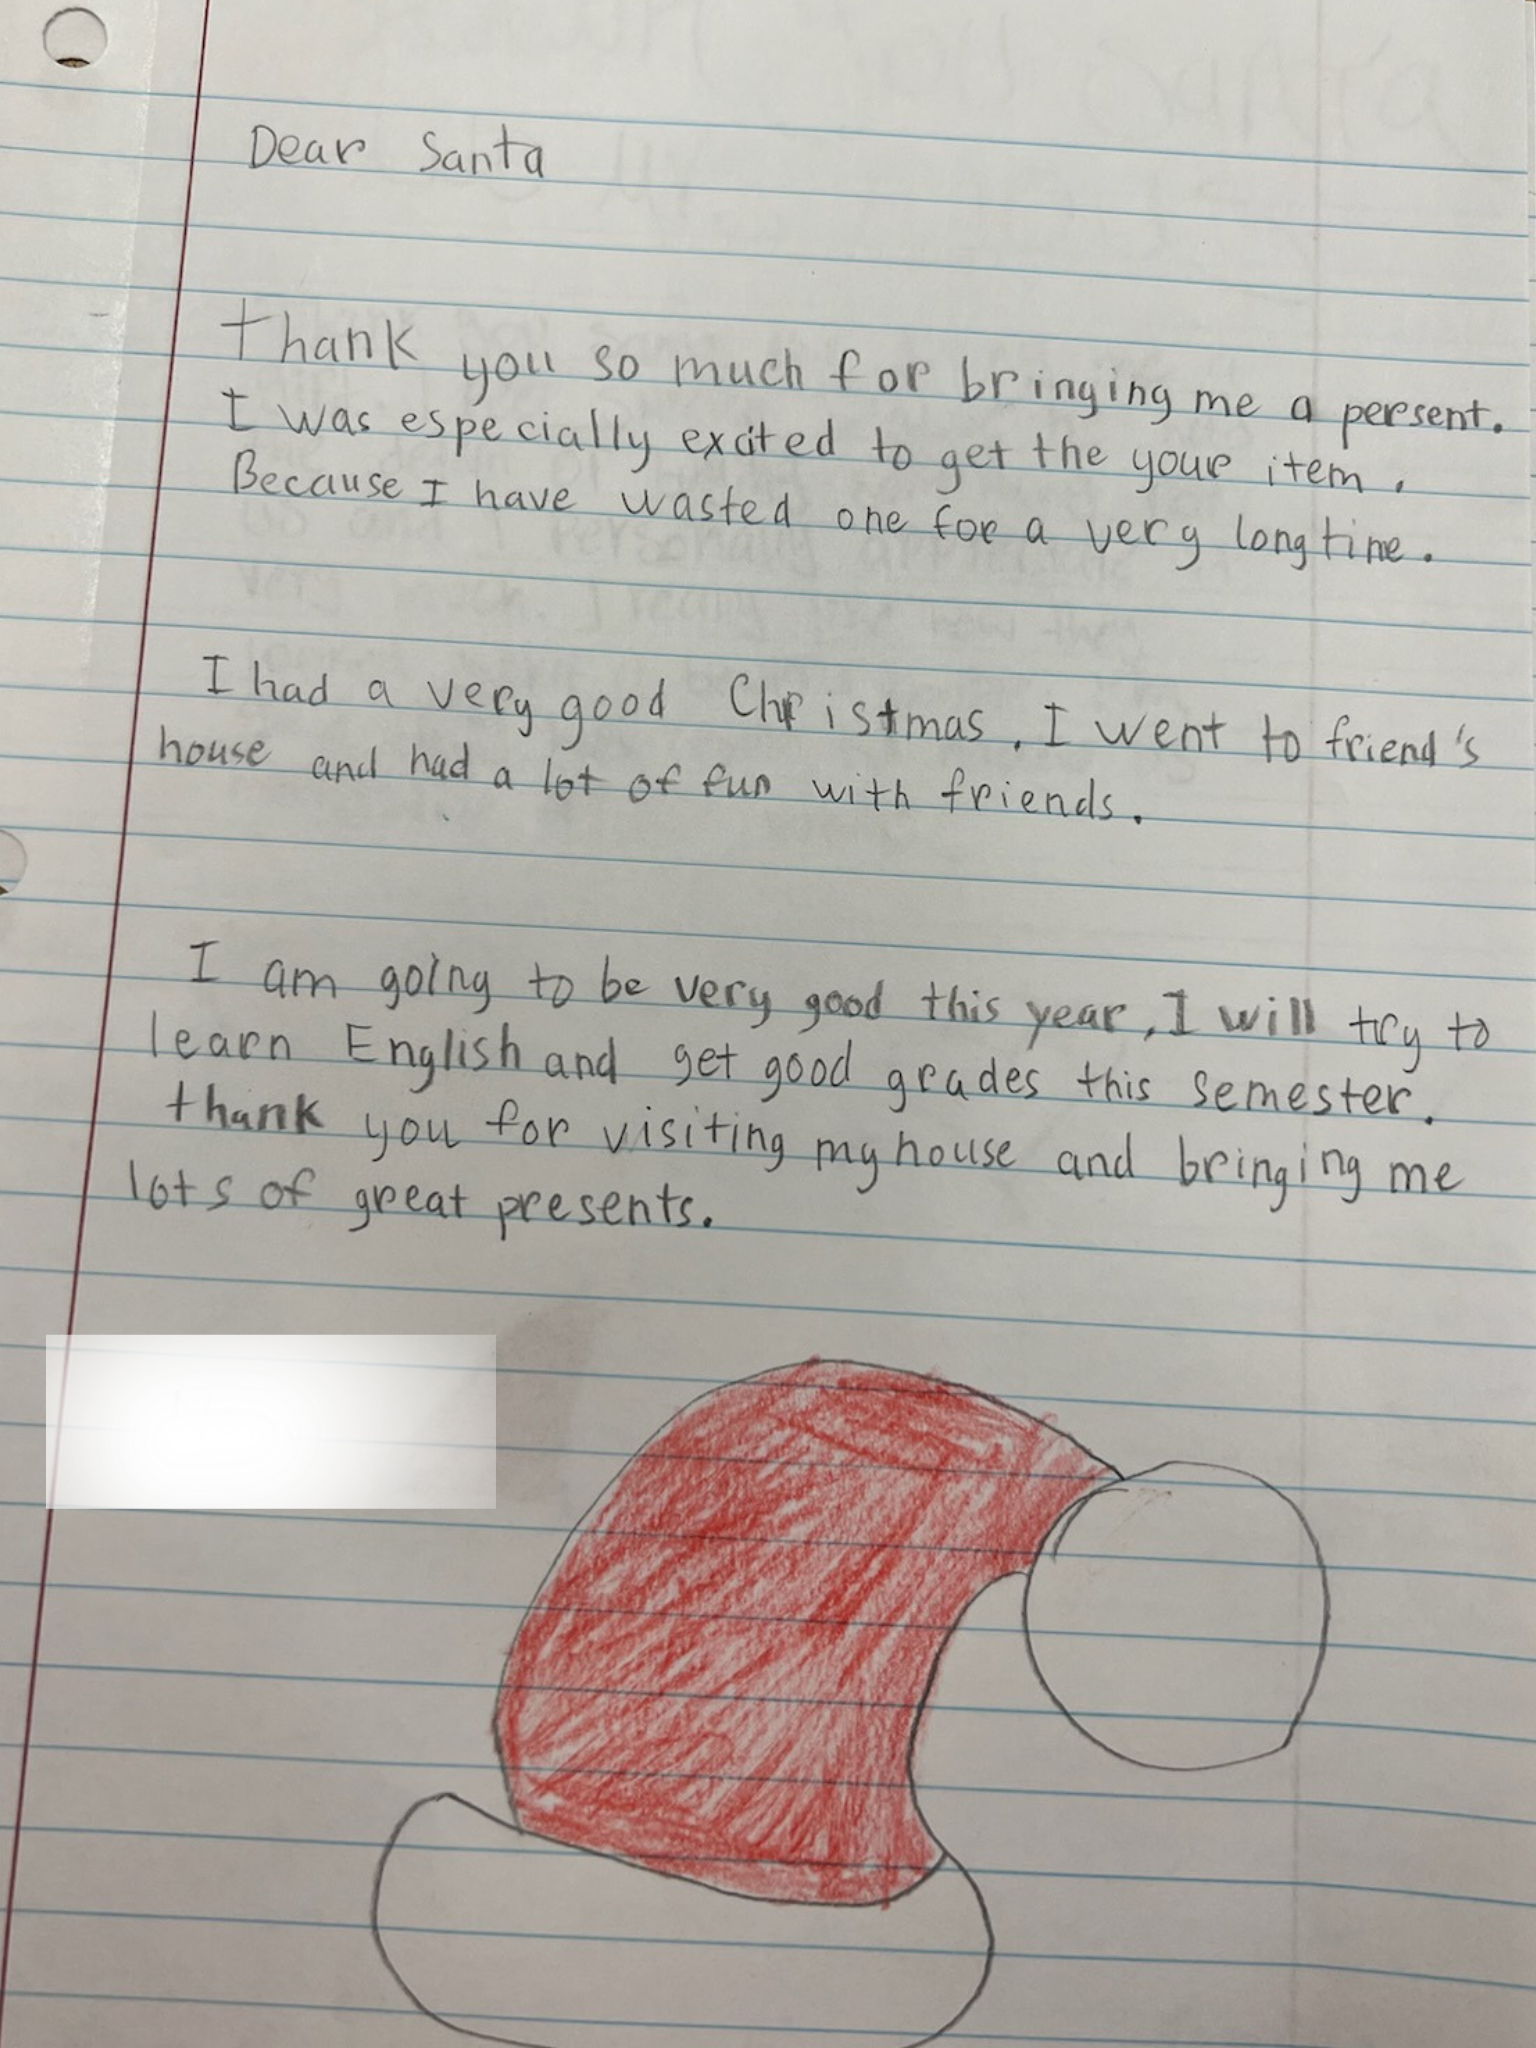 Dear Santa
thank you so much for bringing me a persent.
I was especially excited to get the your item.
Because I have wasted one for a very long time.
I had a very good Christmas. I went to friend's
house and had a lot of fun with friends.
I am going to be very good this year, I will try to
learn English and get good grades this semester.
thank you for visiting my house and bringing me
lots of great presents.